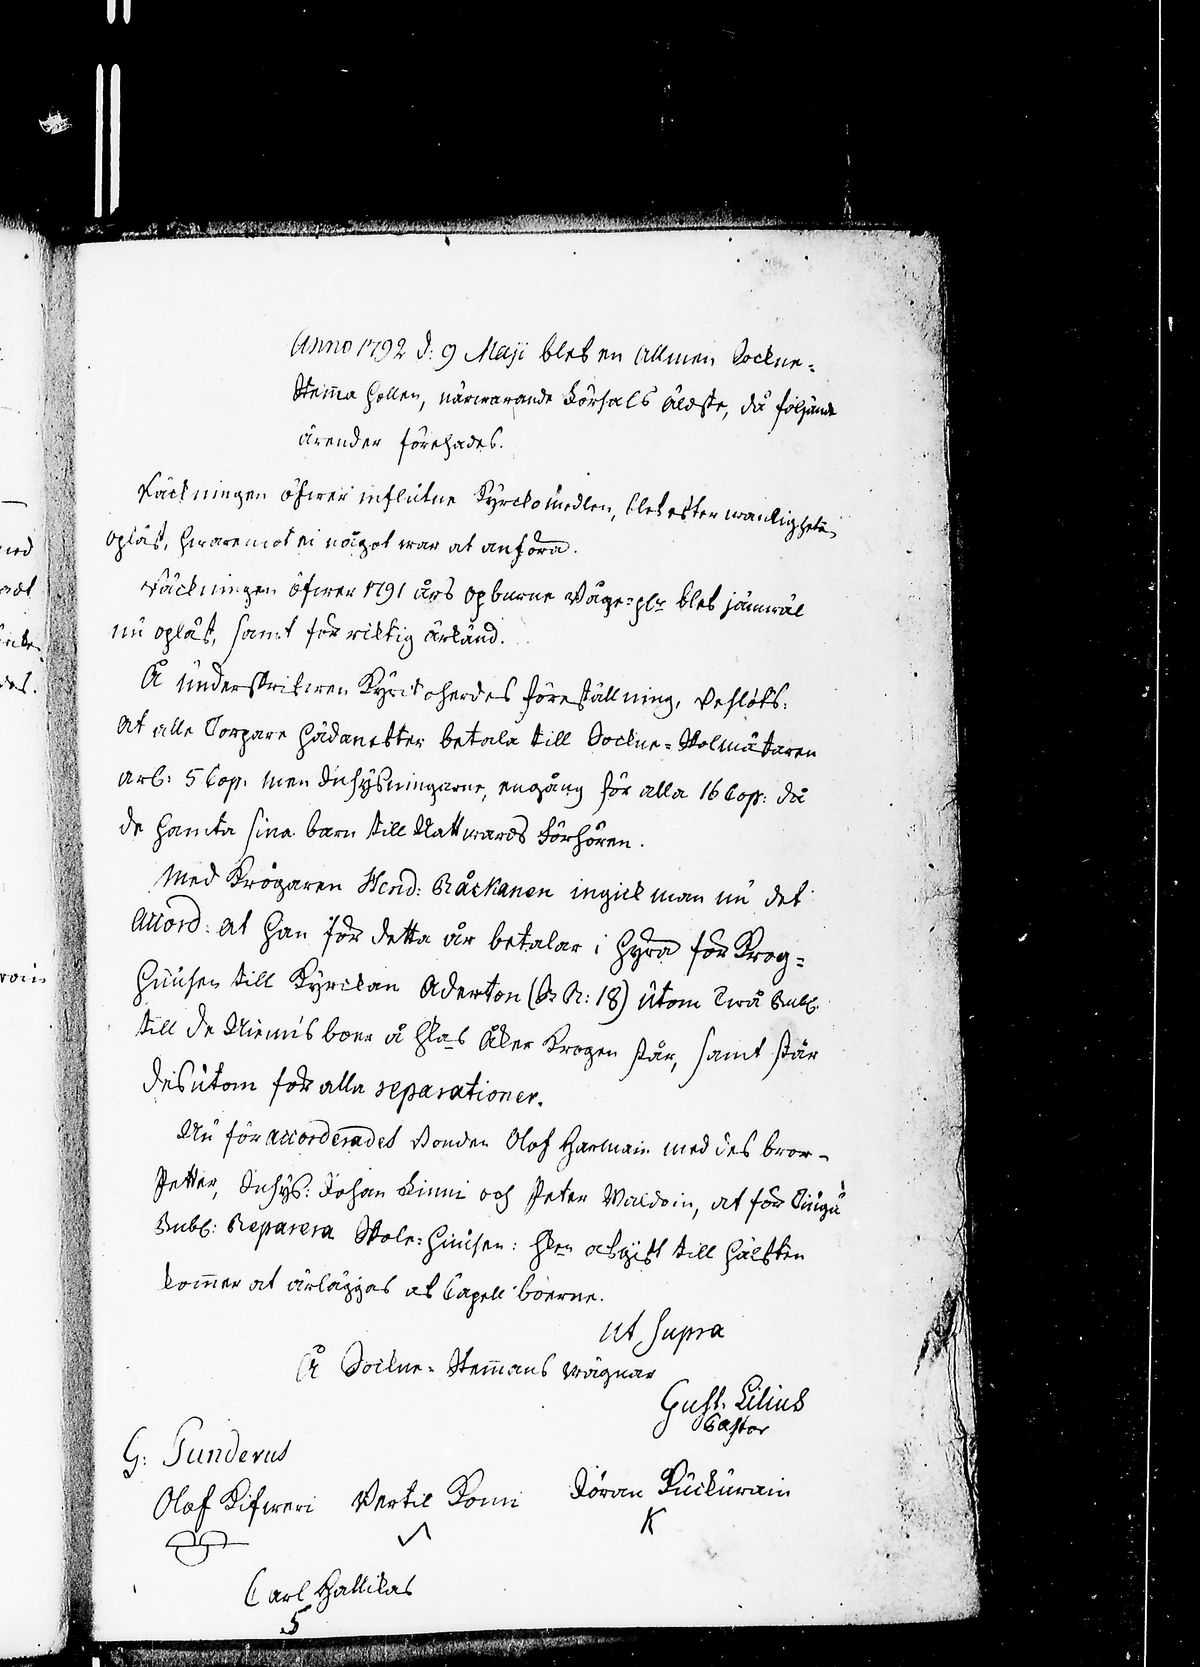 Anno 1792 d: 9 Maji blef en Allmen Sockne=
Stemma hollen, närwarande Förhals äldste, då följande
ärender förehades.
Räckningen öfwer influtne Kyrckomedlen, blef efter wanligheten
opläst, hwaremot ei något war at anföra.
Räckningen öfwer 1791 års opburne Våge=plr blef jämwäl
nu opläst, samt för riktig ärkänd.
Å underskrifwen Kyrckoherdes föreställning, beslöts:
at alle Torpare hädanefter betala till Sockne=Skolmästaren
arl: 5 Cop. men Inhysningarne, engång för alla 16 Cop: då
de hämta sina barn till Nattwards Förhören.
Med Krögaren Hend: Råckanen ingick man nu det
Accord: at han för detta år betalar i hyra för Krog=
huusen till Kyrckan Aderton (S R: 18) utom Twå Rubl.
till de Niemis boer å hwlas Åker Krogen står, samt står
desutom för alla reparationer.
Nu för accorderades Bonden Olof Harmain med des bror
Petter, Inhys: Johan Kinni och Peter Waldoin, at för Tiugu
Rubl: Reparera Skole=huusen: hwlken afgift till hälften
kommer at ärläggas af Capell boerne.
Ut Supra
Å Sockne=Stemmans wägnar
Gust. Lilius
Pastor
G: Sunderus
Olof Kifweri Bertil Konni Jöran Kuckurain
K
Carl Hallikas
5